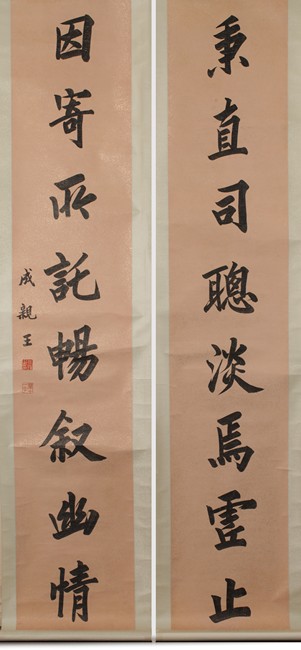 秉直司聰淡焉霊止
因寄所託暢叙幽情
成親王